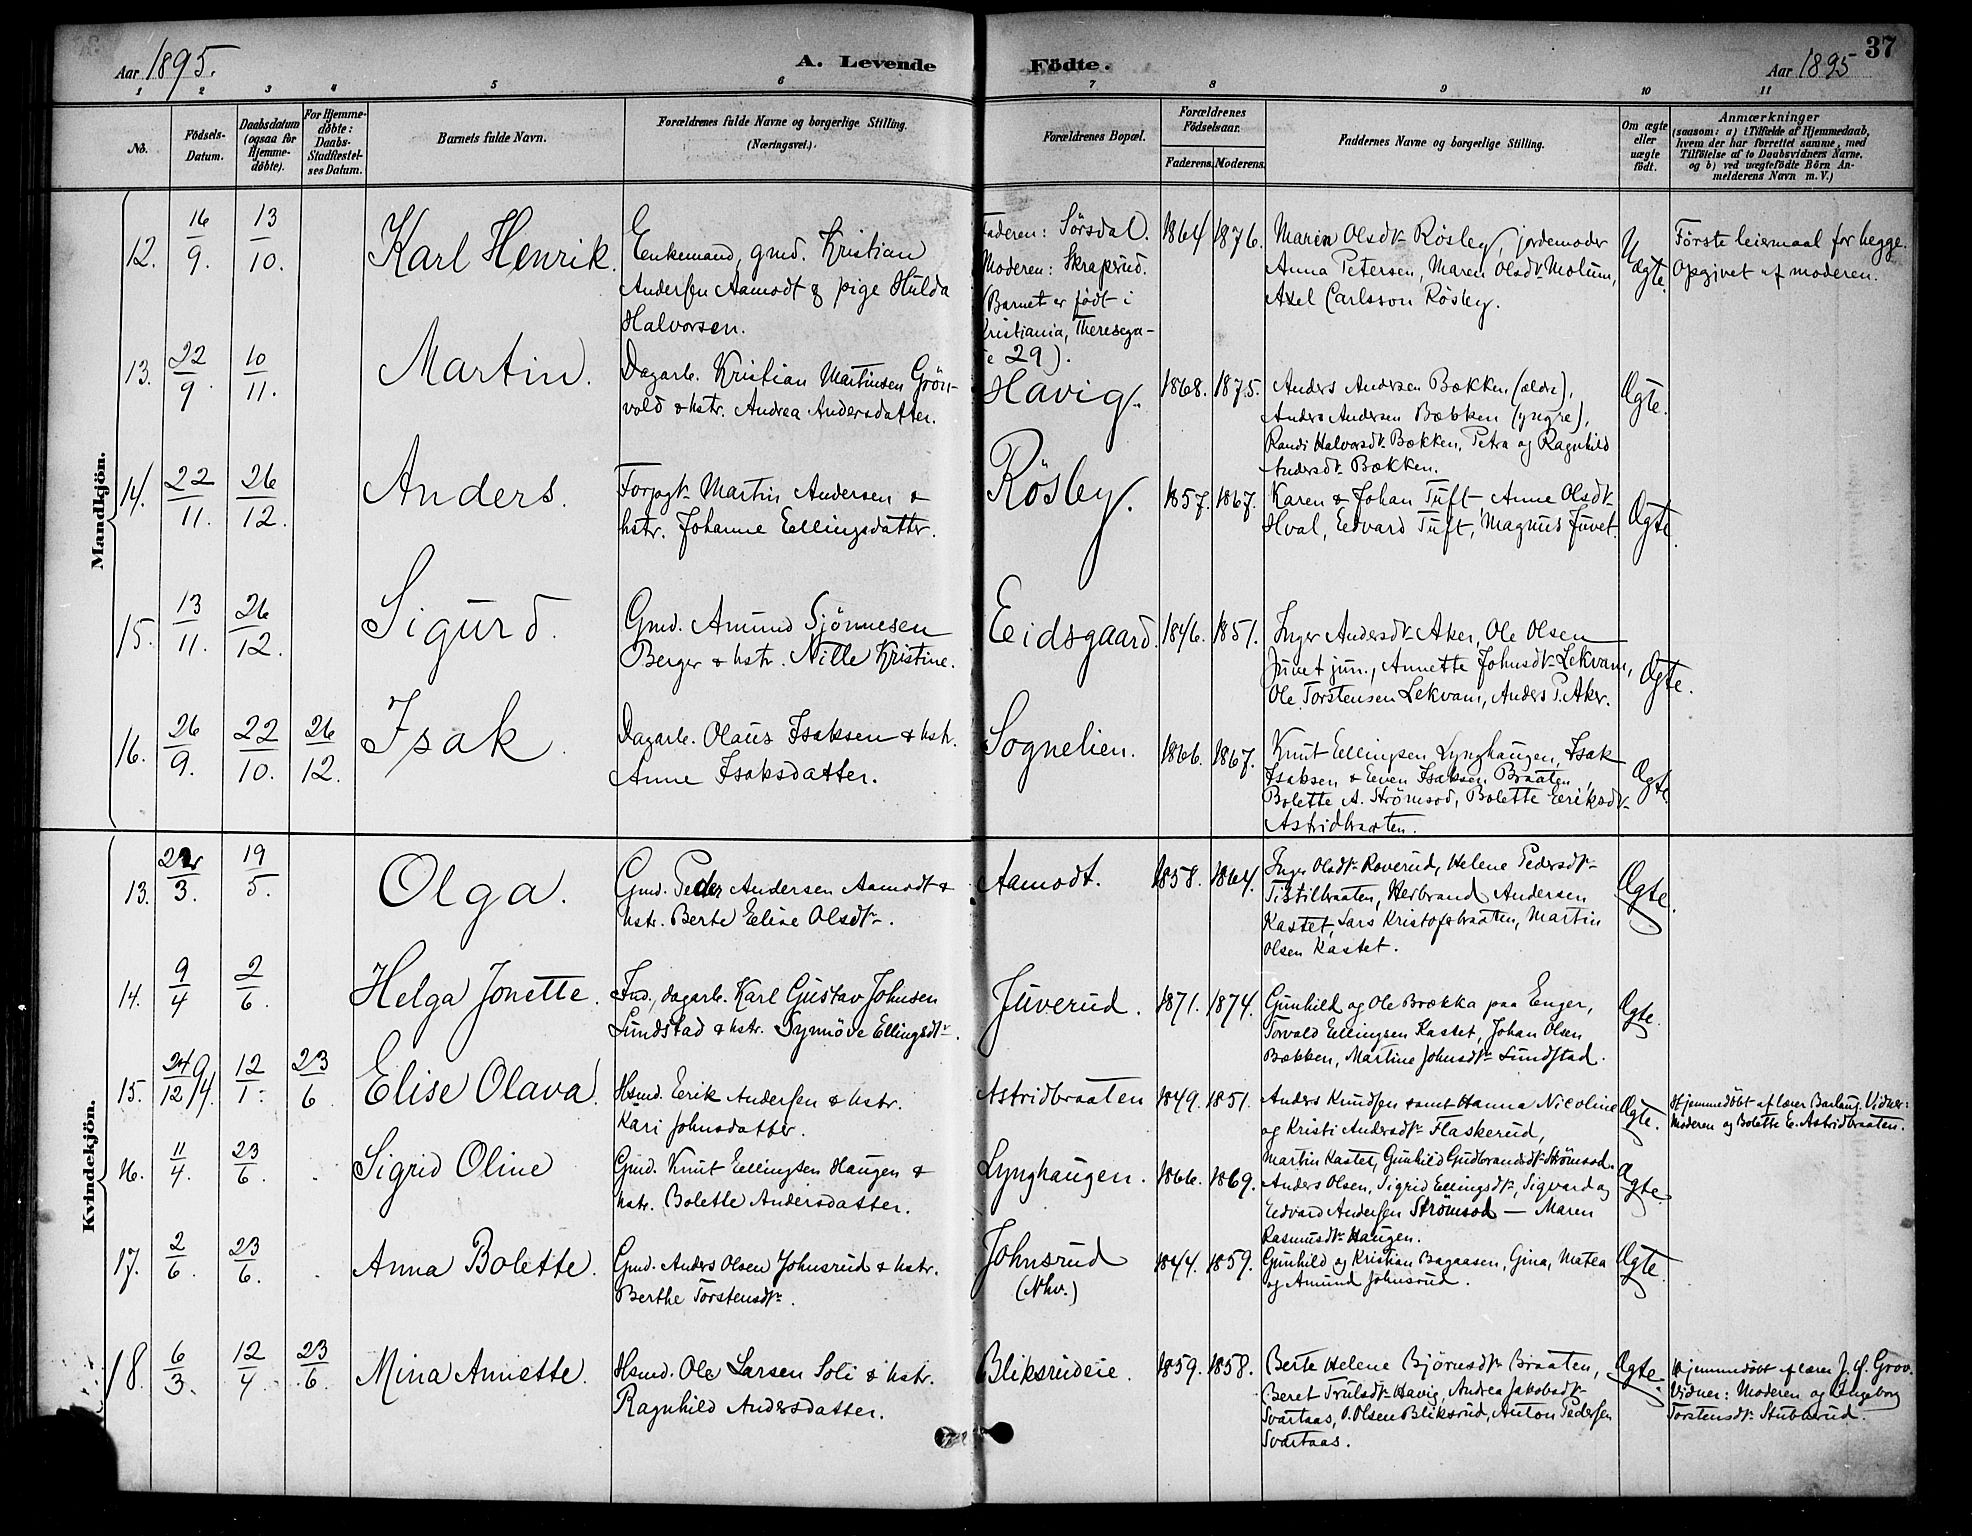 37
Aar 1895. A. Levende Födte. Aar 1895
1 2 3 4 5 6 7 8 9 10 11
No. Födsels-Datum. Daabsdatum (ogsaa for Hjemme-döbte). For Hjemme-döbte: Daabs-Stadfæstel-ses Datum. Barnets fulde Navn. Forældrenes fulde Navne og borgerlige Stilling. (Næringsvei.) Forældrenes Bopæl. Forældrenes Födselsaar. Faderens. Moderens. Faddernes Navne og borgerlige Stilling. Om ægte eller uægte födt. Anmærkninger (saasom: a) i Tilfælde af Hjemmedaab, hvem der har forrettet samme, med Tilföielse af to Daabsvidners Navne, og b) ved uægtefödte Börn An-melderens Navn m. V.)
Mandkjön.
12. 16/9. 13/10. Karl Henrik.
Enkemand, gmd. Kristian
Andersen Aamodt & pige Hulda
Halvorsen.
Faderen: Sörsdal.
Moderen: Skapsrud.
(Barnet er födt i
Kristiania, Theresega-
te 29).
1864 1876.
Maren Olsdtr Rösley, jordemoder
Anna Petersen, Maren Olsdtr Molum,
Axel Carlsson Rösley.
Uægte.
Förste leiermaal for begge.
Opgivet af moderen.
13. 22/9. 10/11. Martin.
Dagarb. Kristian Martinsen Grön-
vold & hstr. Andrea Andersdatter.
Havig. 1868. 1875.
Anders Andersen Bækken (ældre),
Anders Andersen Bækken (yngre),
Randi Halvorsdtr Bækken, Petra og Ragnhild
Andersdtr Bækken.
Ægte.
14. 22/11. 26/12. Anders.
Forpagtr Martin Andersen &
hstr. Johanne Eellingsdattr.
Rösley. 1857. 1867.
Karen & Johan Tuft, Anne Olsdtr
Hval, Eedvard Tuft, Magnus Juvet.
Ægte.
15. 13/11. 26/12. Sigurd.
Gmd. Amund Sjönnesen
Berger & hstr. Nille Kristine.
Eidsgaard. 1846. 1851.
Inger Andersdtr Aker, Ole Olsen
Juvet jun., Annette Johnsdtr Lekvam,
Ole Torstensen Lekvam, Anders P. Aker.
Ægte.
16. 26/9. 22/10. 26/12. Isak.
Dagarb. Olaus Isaksen & hstr.
Anne Isaksdatter.
Sognelien. 1866. 1867.
Knut Eellingsen Lynghaugen, Isak
Isaksen & Even Isaksen Braaten,
Bolette A. Strömsod, Bolette Eeriksdtr
Astridbraaten.
Ægte.
Kvindekjön.
13. 22/3. 19/5. Olga.
Gmd. Peder Andersen Aamodt &
hstr. Berte Eeline Olsdtr.
Aamodt. 1858. 1864.
Inger Olsdtr Roverud, Helene Pedersdtr
Tistilbraaten, Herbrand Andersen
Kastet, Lars Kristofersbraaten, Martin
Olsen Kastet.
Ægte.
14. 9/4 2/6. Helga Jonette.
Ind., dagarb. Karl Gustav Johnsen
Lundstad & hstr. Synnöve Ellingsdtr.
Juverud. 1871. 1874.
Gunhild og Ole Brækka paa Enger,
Torvald Eellingsen Kastet, Johan Olsen
Bækken, Martine Johnsdtr Lundstad.
Ægte.
15. 24/12 94. 12/1. 23/6 Elise Olava.
Hsmd. Eerik Andersen & hstr.
Kari Johnsdatter.
Astridbraaten 1849. 1851.
Anders Knudsen samt Hanna Nicoline
og Kristi Andersdtr Flaskerud,
Martin Kastet, Gunhild Gudbrandsdtr Strömsod.
Ægte.
Hjemmedöbt af lærer Berlaug. Vidner:
Moderen og Bolette E. Astridbraaten.
16. 11/4. 23/6. Sigrid Oline
Gmd. Knut Eellingsen Haugen &
hstr. Bolette Andersdatter.
Lynghaugen. 1866. 1869.
Anders Olsen, Sigrid Ellingsdtr, Sigvard og
Eedvard Andersen Strömsod — Maren
Rasmusdtr Haugen.
Ægte.
17. 2/6. 23/6. Anna Bolette.
Gmd. Anders Olsen Johnsrud & hstr.
Berthe Torstensdtr.
Johnsrud
(Nhv.)
1844. 1859.
Gunhild og Kristian Bagaasen, Gina, Matea
og Amund Johnsrud.
Ægte.
18. 6/3. 12/4. 23/6. Mina Annette.
Hsmd. Ole Larsen Soli & hstr.
Ragnhild Andersdatter.
Bliksrudeie. 1859. 1858.
Berte Helene Björnsdtr Braaten,
Beret Trulsdtr Havig, Andrea Jakobsdtr
Svartaas, O. Olsen Bliksrud, Anton Pedersen
Svartaas.
Ægte.
Hjemmedöbt af lærer J. G. Grov.
Vidner: Moderen og Ingeborg
Torstensdtr Stubberud.